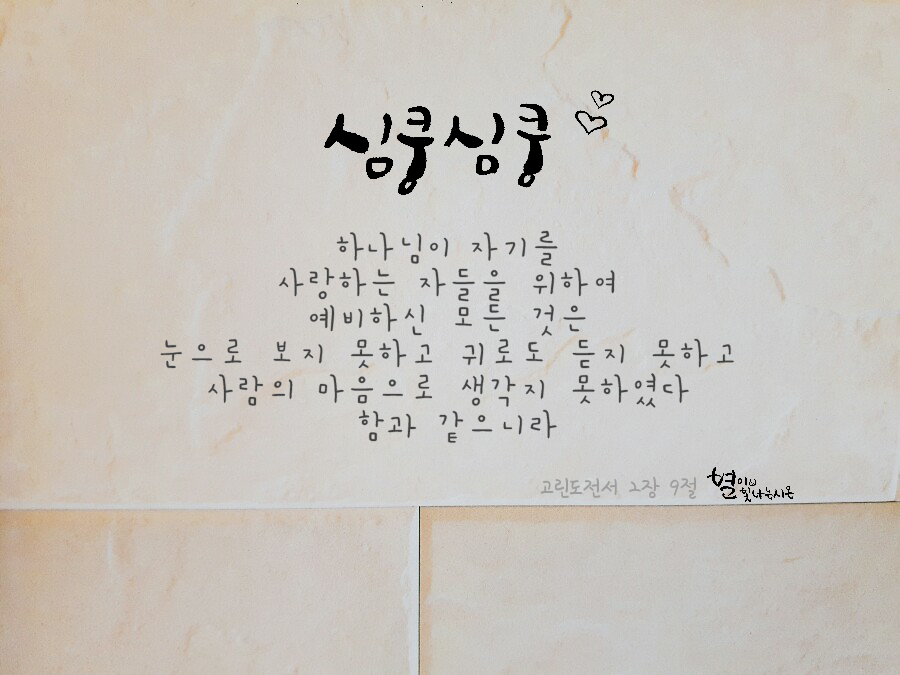 심쿵심쿵
하나님이 자기를
사랑하는 자들을 위하여
예비하신 모든 것은
눈으로 보지 못하고 귀로도 듣지 못하고
사람의 마음으로 생각지 못하였다
함과 같으니라
고린도전서 2장 9절
별이 빛나는시온